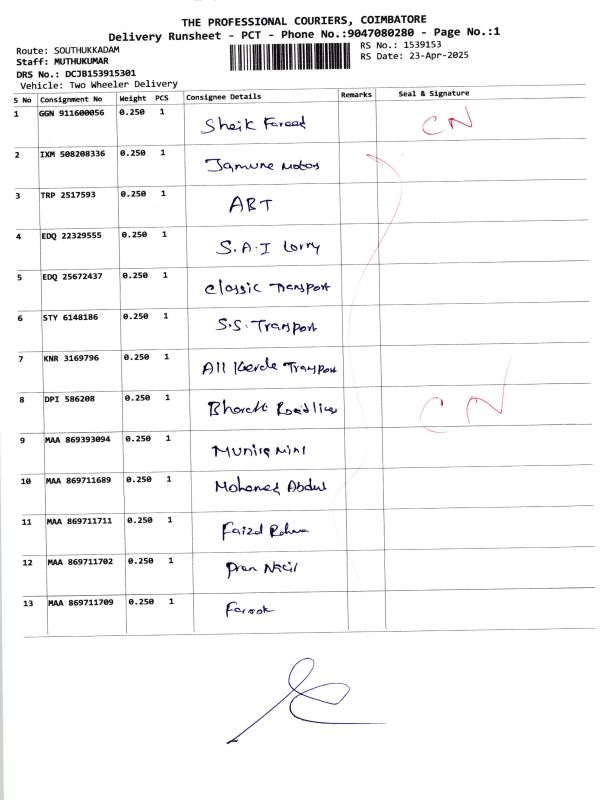 THE PROFESSIONAL COURIERS, COIMBATORE
Delivery Runsheet - PCT - Phone No.:9047080280 - Page No.:1
Route: SOUTHUKKADAM
Staff: MUTHUKUMAR
DRS No.: DCJB153915301
Vehicle: Two Wheeler Delivery
RS No.: 1539153
RS Date: 23-Apr-2025
S No Consignment No Weight PCS Consignee Details Remarks Seal & Signature
1 GGN 911600056 0.250 1 Sheik Fareed CN
2 IXM 508208336 0.250 1 Jamune Motos
3 TRP 2517593 0.250 1 ABT
4 EDQ 22329555 0.250 1 S.A.I Lorry
5 EDQ 25672437 0.250 1 Classic Transport
6 STY 6148186 0.250 1 S.S. Transport
7 KNR 3169796 0.250 1 All Kerele Transport
8 DPI 586208 0.250 1 Bharath Roadlines CN
9 MAA 869393094 0.250 1
10 MAA 869711689 0.250 1 Mohamed Abdul
11 MAA 869711711 0.250 1 Faizal
12 MAA 869711702 0.250 1
13 MAA 869711709 0.250 1 Farook